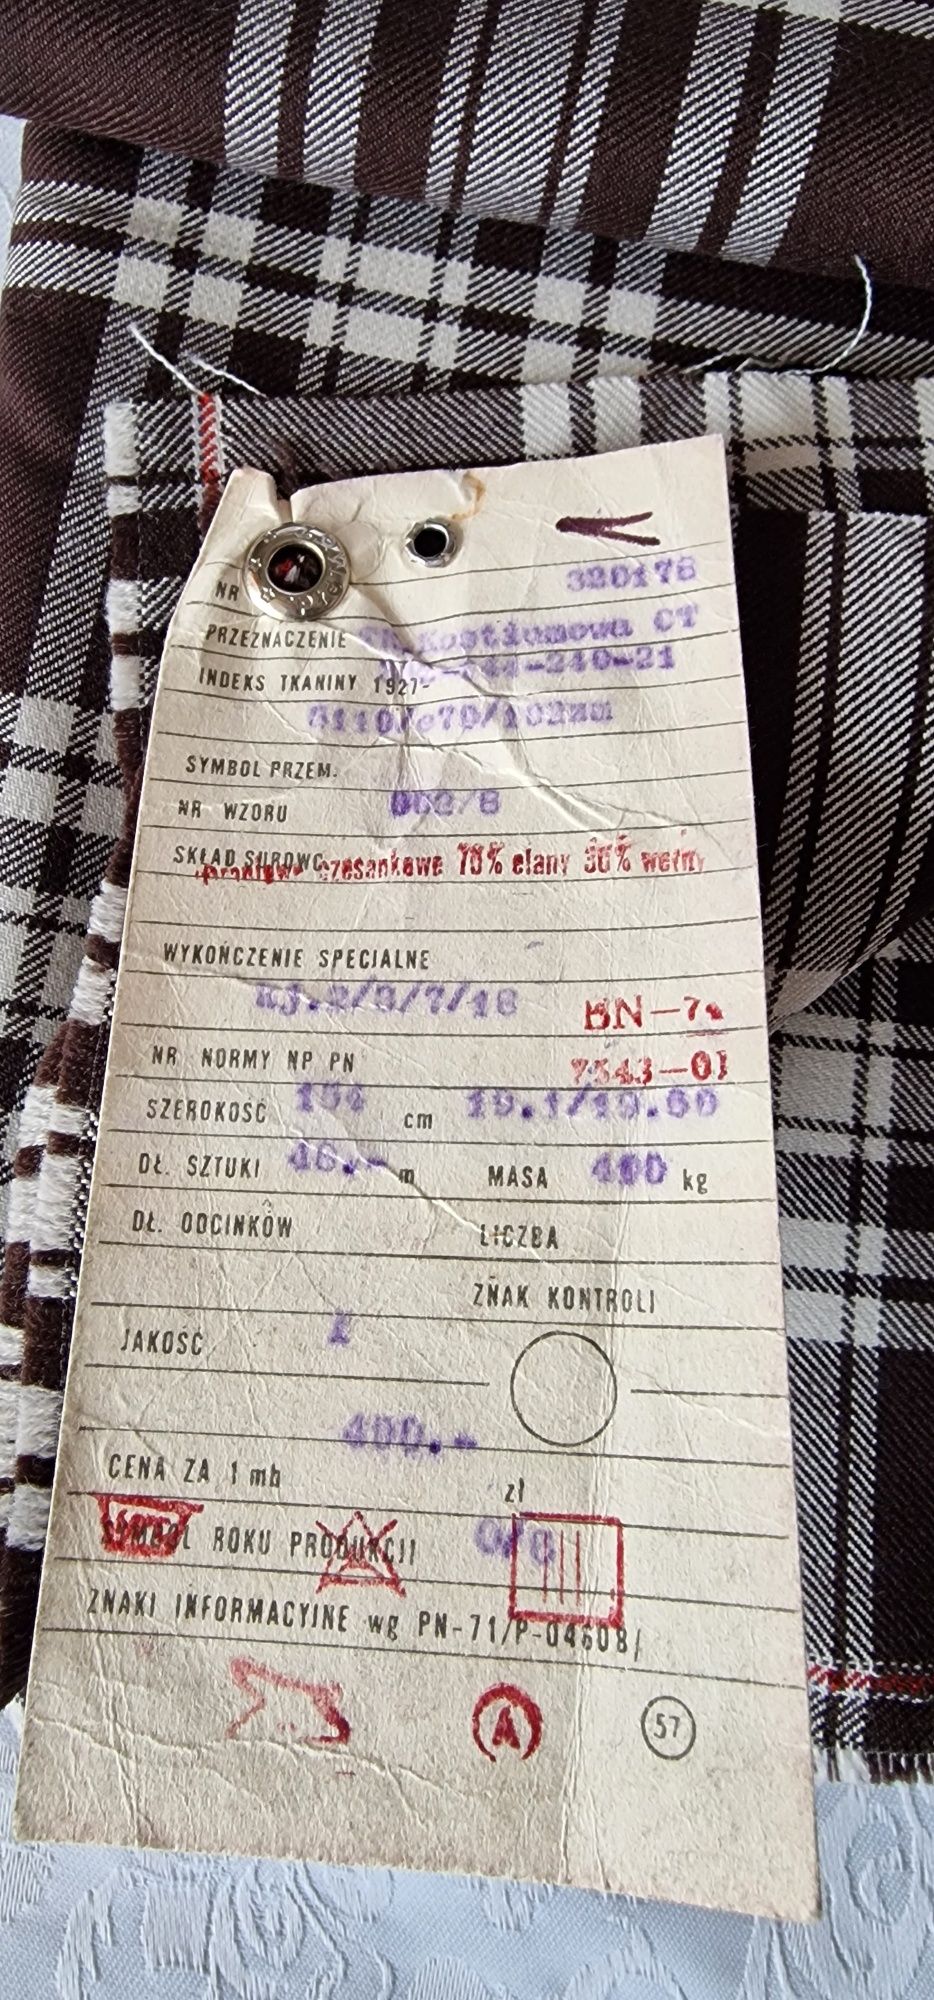 NR 320178
PRZEZNACZENIE Kostiumowa CT
INDEKS TKANINY 1927- -240-21
/102zm
SYMBOL PRZEM.
NR WZORU /8
SKŁAD SUROWC. czesankowe 70% elany 30% wełny
WYKOŃCZENIE SPECIALNE
/7/18 BN-7
NR NORMY NP PN 7543-01
SZEROKOŚĆ cm
DŁ. SZTUKI m MASA kg
DŁ. ODCINKÓW LICZBA
ZNAK KONTROLI
JAKOŚĆ I
400.-
CENA ZA 1 mb zł
SYMBOL ROKU PRODUKCJI
ZNAKI INFORMACYJNE wg PN-71/P-04608/
A 57